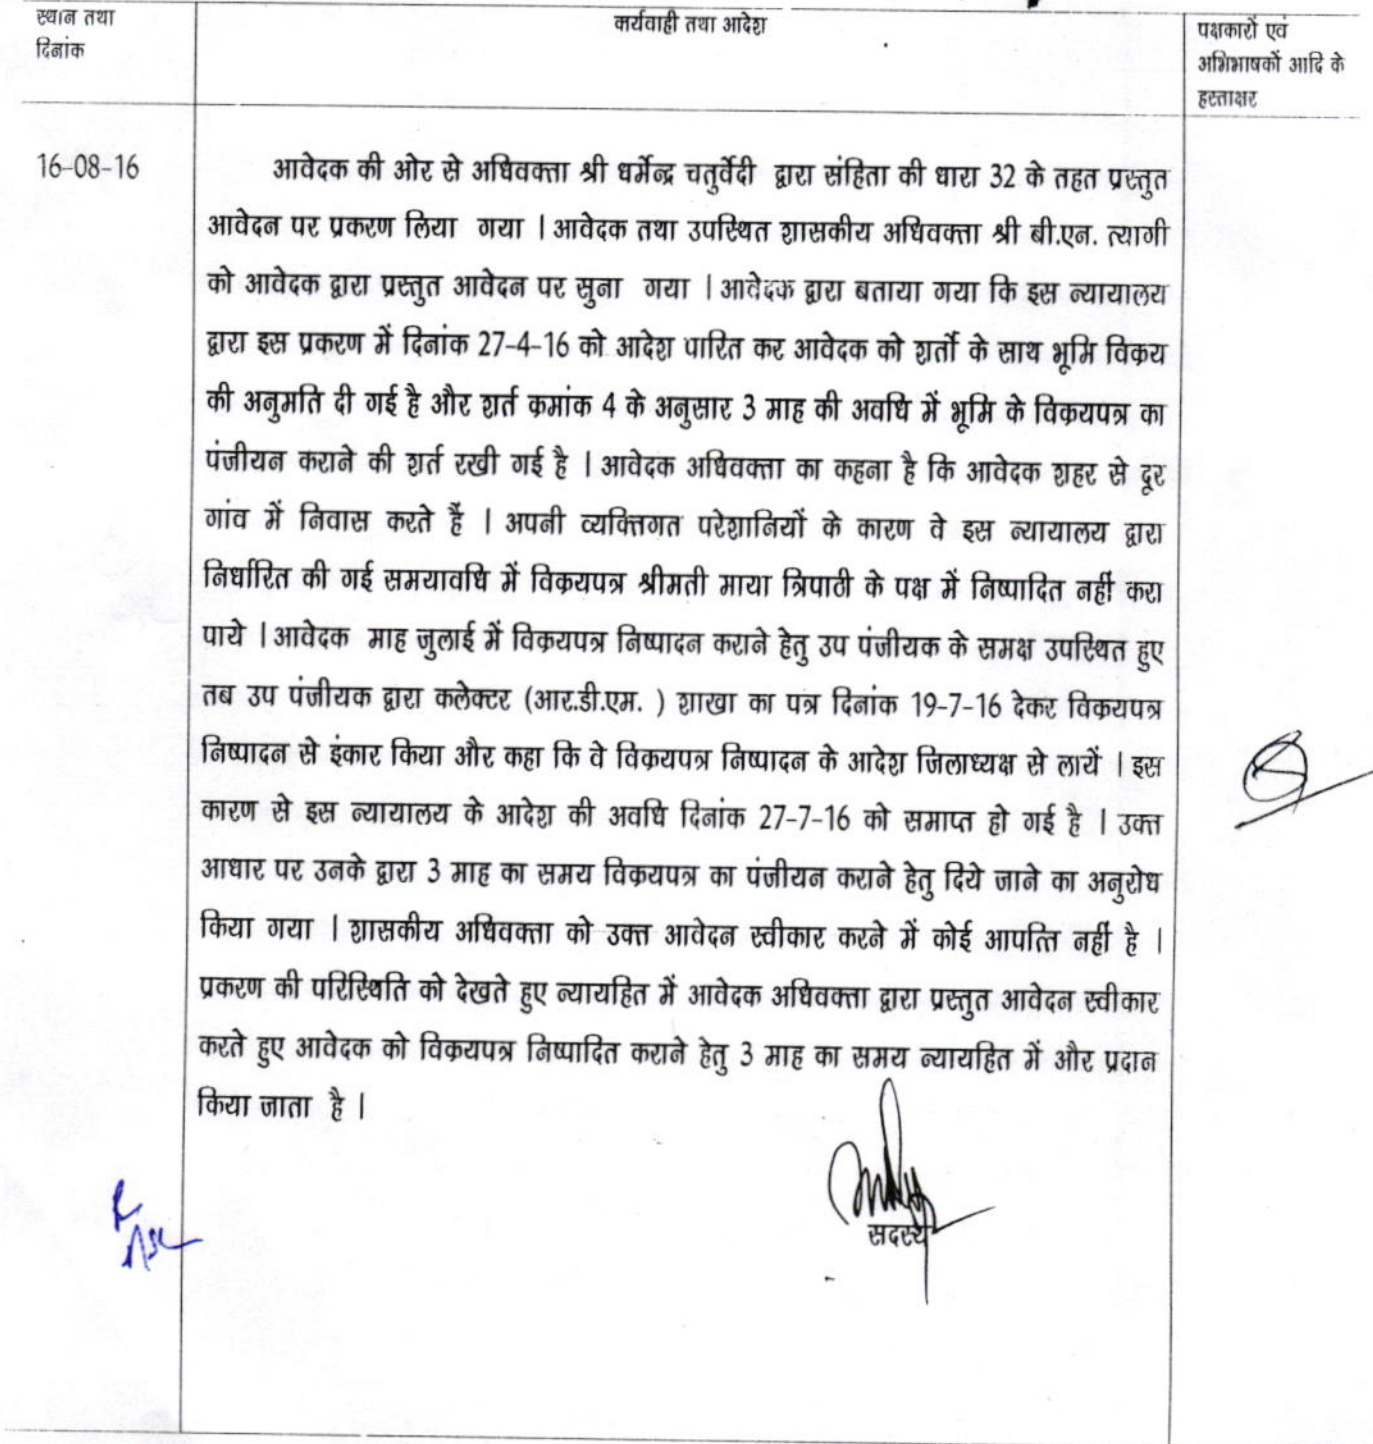 स्थान तथा
दिनांक
कार्यवाही तथा आदेश
पक्षकारों एवं
अभिभाषकों आदि के
हस्ताक्षर
16-08-16
आवेदक की ओर से अधिवक्ता श्री धर्मेन्द्र चतुर्वेदी द्वारा संहिता की धारा 32 के तहत प्रस्तुत
आवेदन पर प्रकरण लिया गया । आवेदक तथा उपस्थित शासकीय अधिवक्ता श्री बी.एन. त्यागी
को आवेदक द्वारा प्रस्तुत आवेदन पर सुना गया । आवेदक द्वारा बताया गया कि इस न्यायालय
द्वारा इस प्रकरण में दिनांक 27-4-16 को आदेश पारित कर आवेदक को शर्तों के साथ भूमि विक्रय
की अनुमति दी गई है और शर्त क्रमांक 4 के अनुसार 3 माह की अवधि में भूमि के विक्रयपत्र का
पंजीयन कराने की शर्त रखी गई है । आवेदक अधिवक्ता का कहना है कि आवेदक शहर से दूर
गांव में निवास करते हैं । अपनी व्यक्तिगत परेशानियों के कारण वे इस न्यायालय द्वारा
निर्धारित की गई समयावधि में विक्रयपत्र श्रीमती माया त्रिपाठी के पक्ष में निष्पादित नहीं करा
पाये । आवेदक माह जुलाई में विक्रयपत्र निष्पादन कराने हेतु उप पंजीयक के समक्ष उपस्थित हुए
तब उप पंजीयक द्वारा कलेक्टर (आर.डी.एम. ) शाखा का पत्र दिनांक 19-7-16 देकर विक्रयपत्र
निष्पादन से इंकार किया और कहा कि वे विक्रयपत्र निष्पादन के आदेश जिलाध्यक्ष से लायें । इस
कारण से इस न्यायालय के आदेश की अवधि दिनांक 27-7-16 को समाप्त हो गई है । उक्त
आधार पर उनके द्वारा 3 माह का समय विक्रयपत्र का पंजीयन कराने हेतु दिये जाने का अनुरोध
किया गया । शासकीय अधिवक्ता को उक्त आवेदन स्वीकार करने में कोई आपत्ति नहीं है ।
प्रकरण की परिस्थिति को देखते हुए न्यायहित में आवेदक अधिवक्ता द्वारा प्रस्तुत आवेदन स्वीकार
करते हुए आवेदक को विक्रयपत्र निष्पादित कराने हेतु 3 माह का समय न्यायहित में और प्रदान
किया जाता है ।
सदस्य